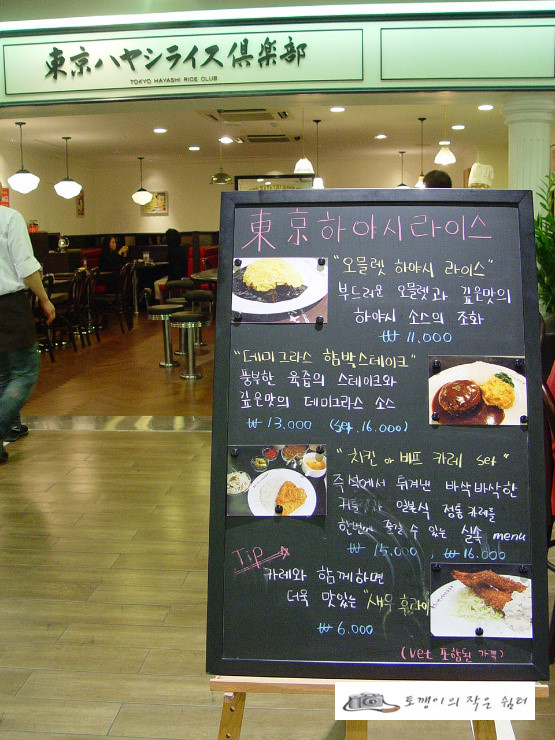 東京ハヤシライス倶楽部
TOKYO HAYASHI RICE CLUB
東京하야시라이스
"오믈렛 하야시 라이스"
부드러운 오믈렛과 깊은맛의
하야시 소스의 조화
₩ 11,000
"데미그라스 함박스테이크"
풍부한 육즙의 스테이크와
깊은맛의 데미그라스 소스
₩ 13.000 (set.16.000)
"치킨 or 비프 카레 set"
즉석에서 튀겨낸 바삭바삭한
일본식 정통 카레를
한번에 즐길 수 있는 실속 menu
₩ 15.000 , ₩ 16.000
Tip
카레와 함께하면
더욱 맛있는 "새우 후라이
₩ 6.000
(vat 포함된 가격)
토깽이의 작은 쉼터